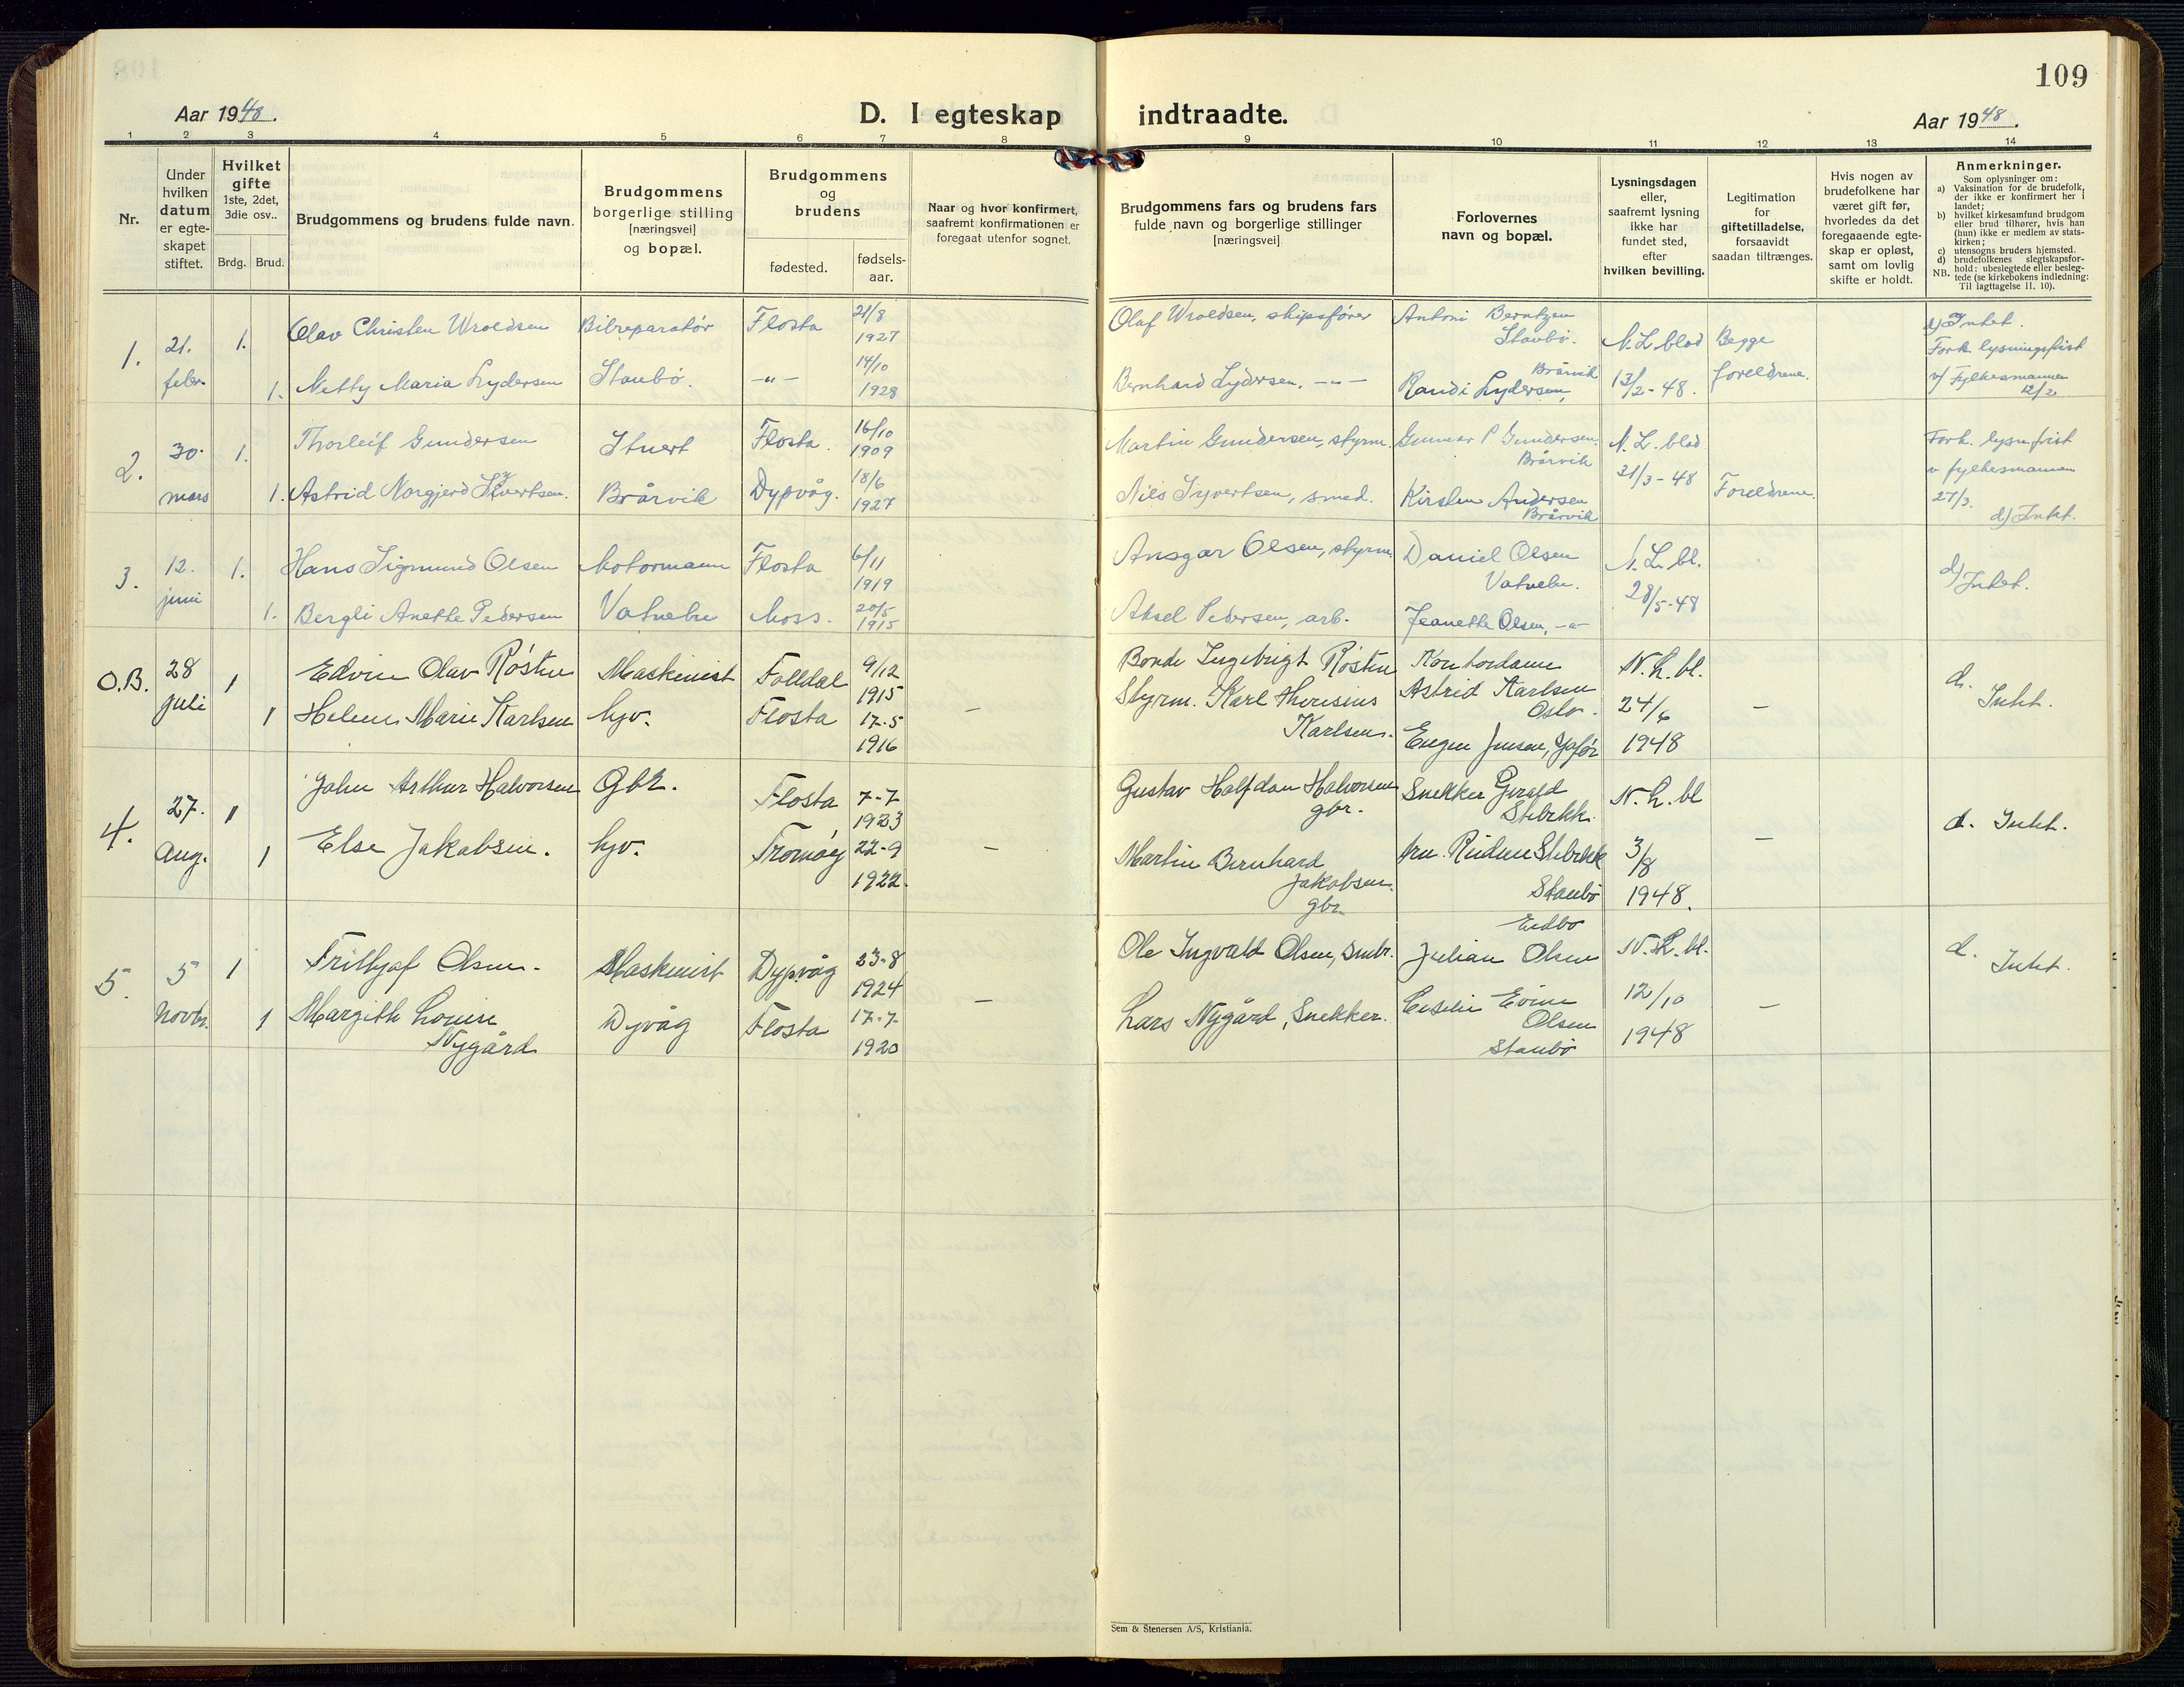 109
Aar 1948.
D. I egteskap indtraadte.
Aar 1948.
1 2 3 4 5 6 7 8 9 10 11 12 13 14
Nr.
Under hvilken datum er egte-skapet stiftet.
Hvilket gifte 1ste, 2det, 3die osv..
Brdg. Brud.
Brudgommens og brudens fulde navn.
Brudgommens borgerlige stilling [næringsvei] og bopæl.
Brudgommens og brudens
fødested. fødsels-aar.
Naar og hvor konfirmert, saafremt konfirmationen er foregaat utenfor sognet.
Brudgommens fars og brudens fars fulde navn og borgerlige stillinger [næringsvei]
Forlovernes navn og bopæl.
Lysningsdagen eller, saafremt lysning ikke har fundet sted, efter hvilken bevilling.
Legitimation for giftetilladelse, forsaavidt saadan tiltrænges.
Hvis nogen av brudefolkene har været gift før, hvorledes da det foregaaende egte-skap er opløst, samt om lovlig skifte er holdt.
Anmerkninger.
Som oplysninger om:
a) Vaksination for de brudefolk, der ikke er konfirmert her i landet;
b) hvilket kirkesamfund brudgom eller brud tilhører, hvis han (hun) ikke er medlem av stats-kirken;
c) utensogns bruders hjemsted.
d) brudefolkenes slegtskapsfor-hold: ubeslegtede eller besleg-tede (se kirkebokens indledning: Til iagttagelse II. 10).
NB.
1. 21. febr. 1. Olav Christen Wroldsen Bilreparatør Flosta 21/8 1927 Olaf Wroldsen, skipsfører Antoni Berntzen Staubø. N.L. blad Begge d) Intet.
1. Netty Maria Lydersen Staubø. -"- 14/10 1928 Bernhard Lydersen, -"- Randi Lydersen, Brårvik 13/2-48. foreldrene. Fork. lysningsfrist v/ Fylkesmannen 12/2
2. 30. mars 1. Thorleif Gundersen Stuert Flosta. 16/10 1909 Martin Gundersen, styrm. Gunnar P Gundersen. Brårvik N.L. blad Fork. lysn.frist
1. Astrid Norgjerd Syvertsen. Brårvik Dypvåg. 18/6 1927 Nils Syvertsen, smed. Kirsten Andersen Brårvik 21/3-48 Foreldrene. v fylkesmannen 27/3. d) Intet.
3. 12. juni 1. Hans Sigmund Olsen Motormann Flosta 6/11 1919 Ansgar Olsen, styrm. Daniel Olsen Vatnebu. N.L. bl. d) Intet.
1. Bergli Anette Pedersen Vatnebu Moss. 20/5 1915 Aksel Pedersen, arb. Jeanette Olsen, -"- 28/5-48
O.B. 28 juli 1 Edvin Olav Røsten Maskinist Folldal 9/12 1915 Bonde Ingebrigt Røsten Kontordame Astrid Karlsen Oslo. N.L. bl. d. Intet.
1 Helene Marie Karlsen hjv. Flosta 17-5 1916 – Styrm. Karl Theresius Karlsen. Eugen Jensen, 24/6 1948 –
4. 27. Aug. 1 John Arthur Halvorsen Gbr. Flosta 7-7 1923 Gustav Halfdan Halvorsen gbr. Snekker N.L. bl d. Intet.
1 Else Jakobsen. hjv. Tromøy 22-9 1922. – Martin Bernhard Jakobsen. gbr. Staubø 3/8 1948. –
5. 5 Novbr. 1 Frithjof Olsen. Maskinist Dypvåg 23-8 1924 Ole Ingvald Olsen, Eidbo Julian Olsen N.L. bl. d. Intet.
1 Margith Louise Nygård Dyvåg Flosta 17-7 1920 – Lars Nygård, Snekker. Olsen Staubø 12/10 1948 –
Sem & Stenersen A/S, Kristiania.